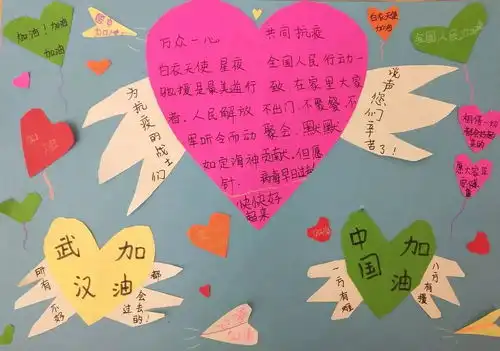 加油！加油
加油
白衣天使
加油
万众一心
白衣天使 星夜
驰援是最美逆行
者。人民解放
军听令而动
如定海神
针.
共同抗疫
全国人民行动一
致 在家里大家
不出门.不聚餐.不
聚会.默默
贡献.但愿
病毒早日过去
快快好
起来
为抗疫的战士们
说声您们辛苦了！
武汉
加油
所有不好
都会过去的！
中国
加油
一方有难
八方有援
相信一切
都会好起
来的
愿大家平
安健康